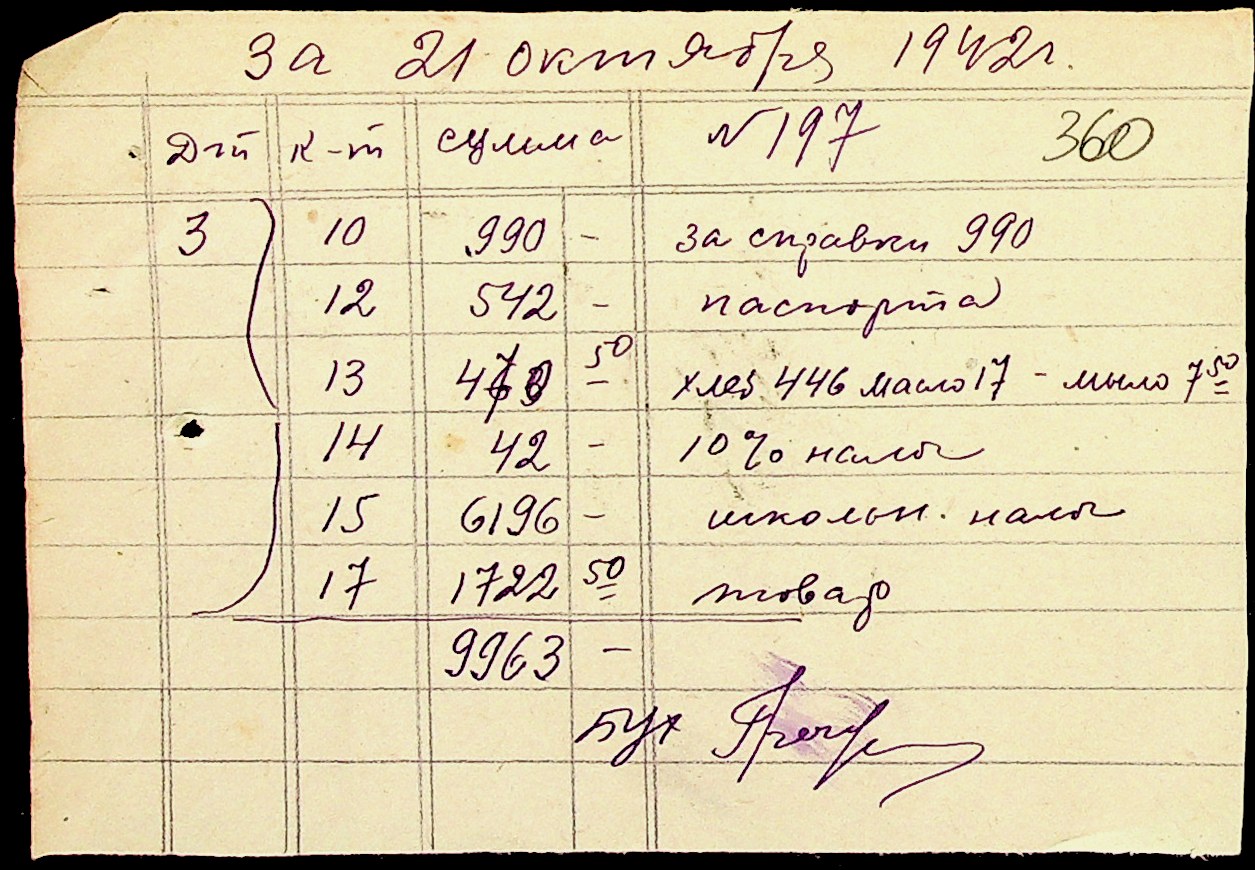 за 21 октября 1942г.
Дт к-т сумма №197 360
3 10 990 - за справки 990
12 542 - паспорта
13 470 50 хлеб 446 масло 17 - мыло 7 50
14 42 - 10% налог
15 6196 - школьн. налог
17 1722 50 товар
9963 -
Бух